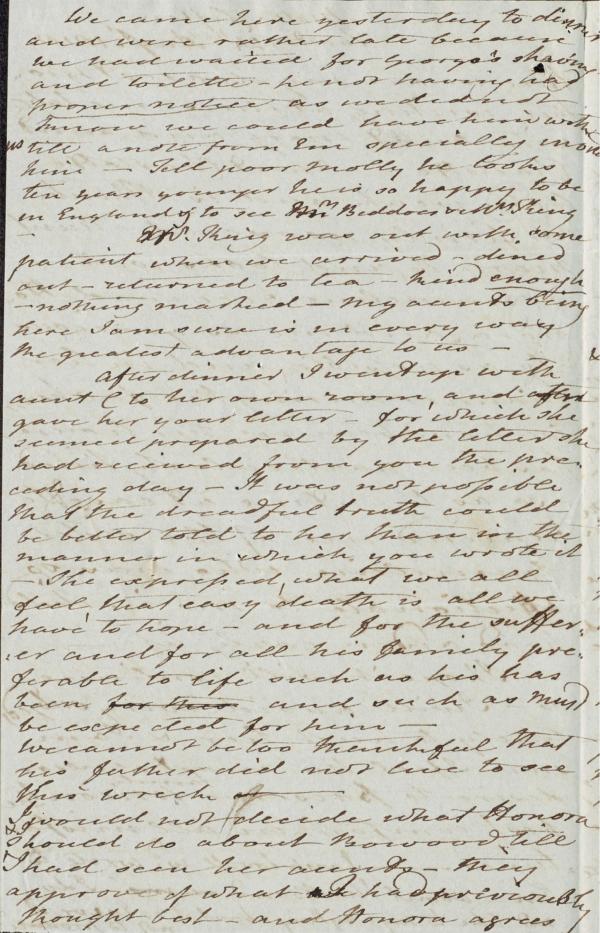 We came here yesterday to dinner
and were rather late because
we had waited for George's shaving
and toilette - he not having had
proper notice as we did not
know we could have him with
us till a note from Em specially
him — Tell poor Molly he looks
ten years younger he is so happy to be
in England & to see Mrs Beddoes & Mrs King
— Mr. King was out with some
patient when we arrived - dined
out - returned to tea - kind enough
- nothing marked — My aunts being
here I am sure is in every way
the greatest advantage to us —
After dinner I went up with
aunt C to her own room, and
gave her your letter - for which she
seemed prepared by the letter she
had received from you the pre-
ceding day — It was not possible
that the dreadful truth could
be better told to her than in the
manner in which you wrote it
— She expressed, what we all
feel, that easy death is all we
have to hope - and for the suffer-
er and for all his family pre-
ferable to life such as his has
been for this and such as must
be expected for him —
We cannot be too thankful that
his father did not live to see
this wreck —
I would not decide what Honora
& I should do about Bowood till
I had seen her aunts - they
approve of what I had previously
thought best - and Honora agrees